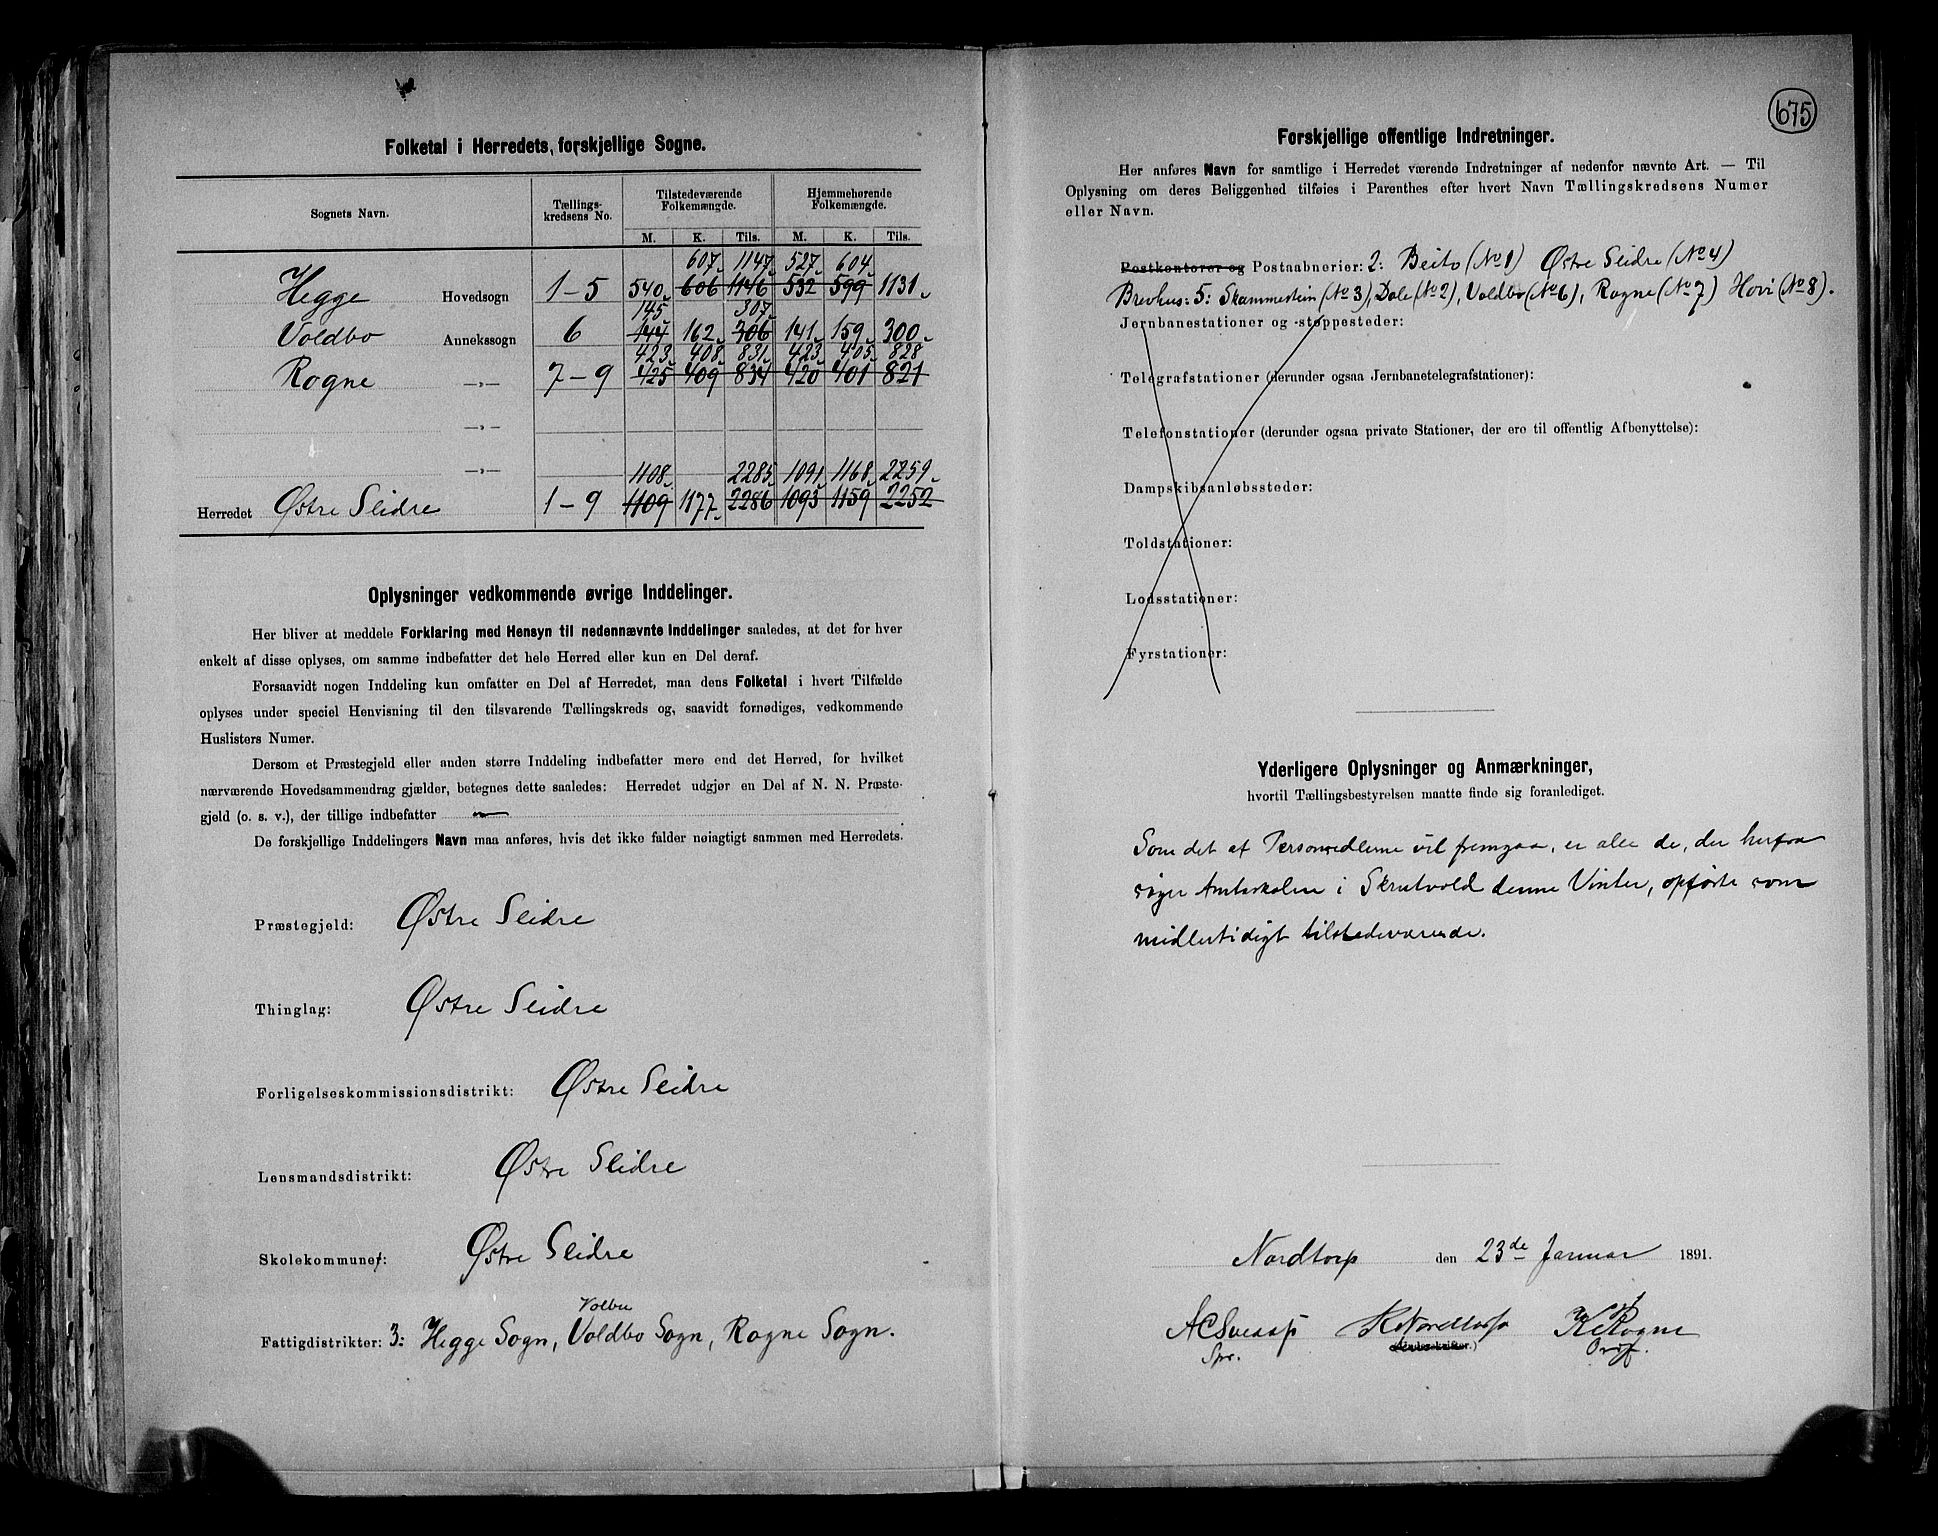 Folketal i Herredets, forskjellige Sogne.
Sognets Navn. Tællings- kredsens No. Tilstedeværende Folkemængde. Hjemmehørende Folkemængde.
M. K. Tils. M. K. Tils.
607 1147 527 604
Hegge Hovedsogn 1-5 540 606 1146 532 599 1131
145 307
Voldbo Annekssogn 6 144 162 306 141 159 300
423 408 831 423 405 828
Rogne —„— 7-9 425 409 834 420 401 821
—„—
—„—
1108 2285 1091 1168 2259
Herredet Østre Slidre 1-9 1109 1177 2286 1093 1159 2252
Oplysninger vedkommende øvrige Inddelinger.
Her bliver at meddele Forklaring med Hensyn til nedennævnte Inddelinger saaledes, at det for hver
enkelt af disse oplyses, om samme indbefatter det hele Herred eller kun en Del deraf.
Forsaavidt nogen Inddeling kun omfatter en Del af Herredet, maa dens Folketal i hvert Tilfælde
oplyses under speciel Henvisning til den tilsvarende Tællingskreds og, saavidt fornødiges, vedkommende
Huslisters Numer.
Dersom et Præstegjeld eller anden større Inddeling indbefatter mere end det Herred, for hvilket
nærværende Hovedsammendrag gjælder, betegnes dette saaledes: Herredet udgjør en Del af N. N. Præste-
gjeld (o. s. v.), der tillige indbefatter
De forskjellige Inddelingers Navn maa anføres, hvis det ikke falder nøiagtigt sammen med Herredets.
Præstegjeld: Østre Slidre
Thinglag: Østre Slidre
Forligelseskommissionsdistrikt: Østre Slidre
Lensmandsdistrikt: Østre Slidre
Skolekommuner: Østre Slidre
Volbu
Fattigdistrikter: 3: Hegge Sogn, Voldbo Sogn, Rogne Sogn.
675
Forskjellige offentlige Indretninger.
Her anføres Navn for samtlige i Herredet værende Indretninger af nedenfor nævnte Art. — Til
Oplysning om deres Beliggenhed tilføies i Parenthes efter hvert Navn Tællingskredsens Numer
eller Navn.
Postkontorer og Postaabnerier: 2: Beito (No 1) Østre Slidre (No 4)
Brevhus: 5: Skammestein (No 3), Dale (No 2), Voldbo (No 6), Rogne (No 7) Hovi (No 8).
Jernbanestationer og -stoppesteder:
Telegrafstationer (derunder ogsaa Jernbanetelegrafstationer):
Telefonstationer (derunder ogsaa private Stationer, der ere til offentlig Afbenyttelse):
Dampskibsanløbssteder:
Toldstationer:
Lodsstationer:
Fyrstationer:
Yderligere Oplysninger og Anmærkninger,
hvortil Tællingsbestyrelsen maatte finde sig foranlediget.
Som det af Personsedlerne vil fremgaa, er alle de, der herfra
søger Amtsskolen i Skrutvold denne Vinter, opførte som
midlertidigt tilstedeværende.
Nordtorp den 23de Januar 1891.
K Nordtorp K Rogne
(Underskrifter.)